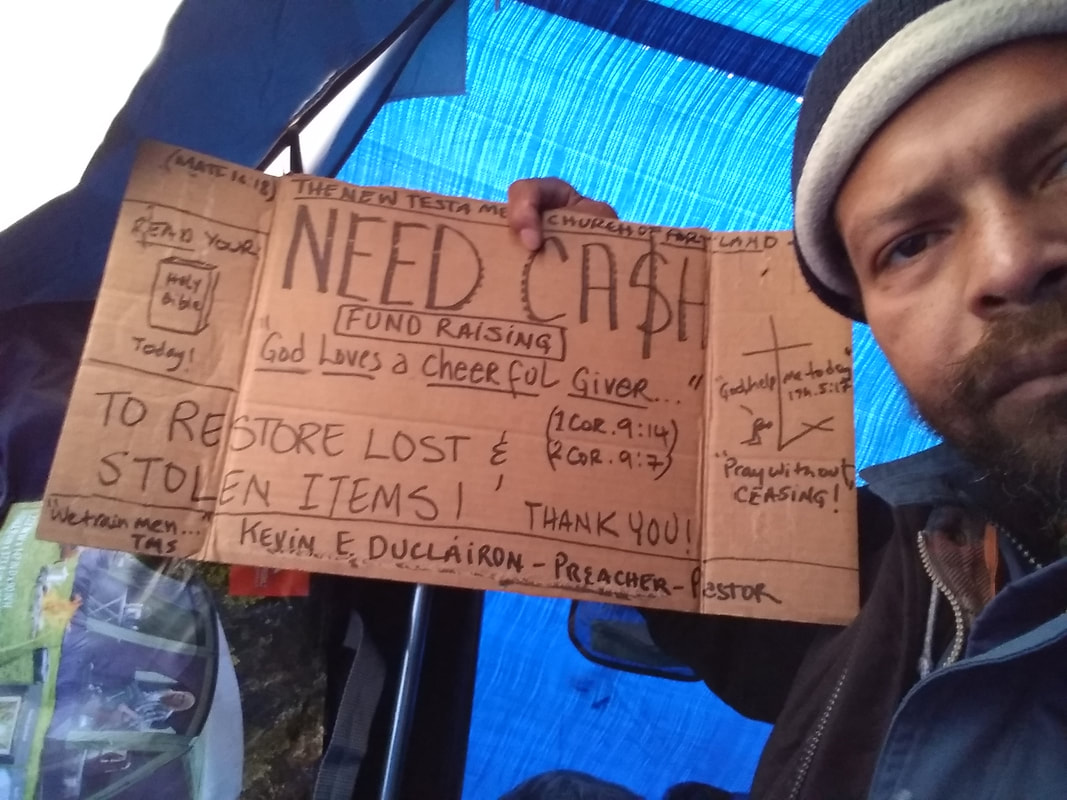 (MATT 16:18)
THE NEW TESTAME CHURCH OF PORTLAND -
READ YOUR
HOLY
Bible
Today!
NEED CA$H
FUND RAISING
"God Loves a Cheerful Giver..."
(1 COR. 9:14)
(2 COR. 9:7)
TO RESTORE LOST &
STOLEN ITEMS!
THANK YOU!
"God, help me today"
1 Th. 5:17
"Pray without
CEASING!
"We train men..."
TMS
KEVIN E. DUCLAIRON - PREACHER - PASTOR